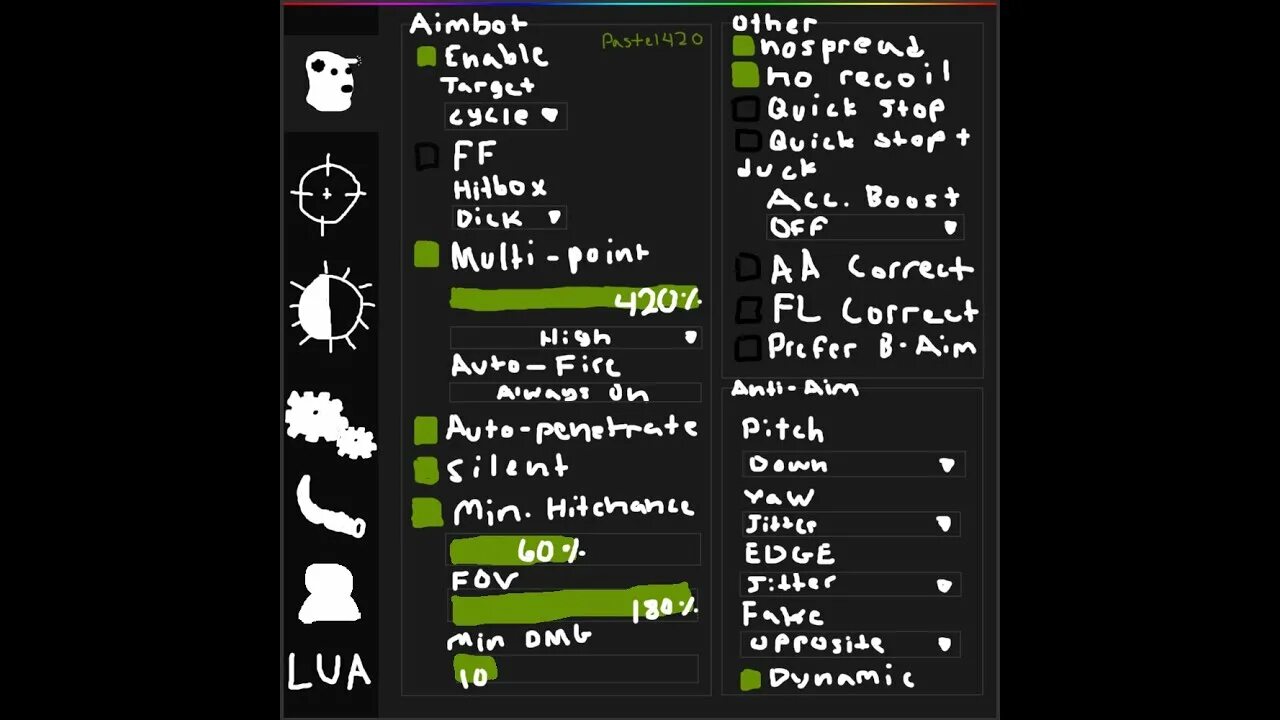 Aimbot
Pastel420
Enable
Target
cycle
FF
Hitbox
Dick
Multi-point
420%
High
Auto-Fire
Always On
Auto-penetrate
Silent
Min. Hitchance
60%
FOV
180%
Min DMG
10
Other
nospread
no recoil
Quick Stop
Quick stop +
duck
Acc. Boost
OFF
AA Correct
FL Correct
Prefer B-Aim
Anti-Aim
Pitch
Down
Yaw
Jitter
EDGE
Jitter
Fake
opposite
Dynamic
LUA